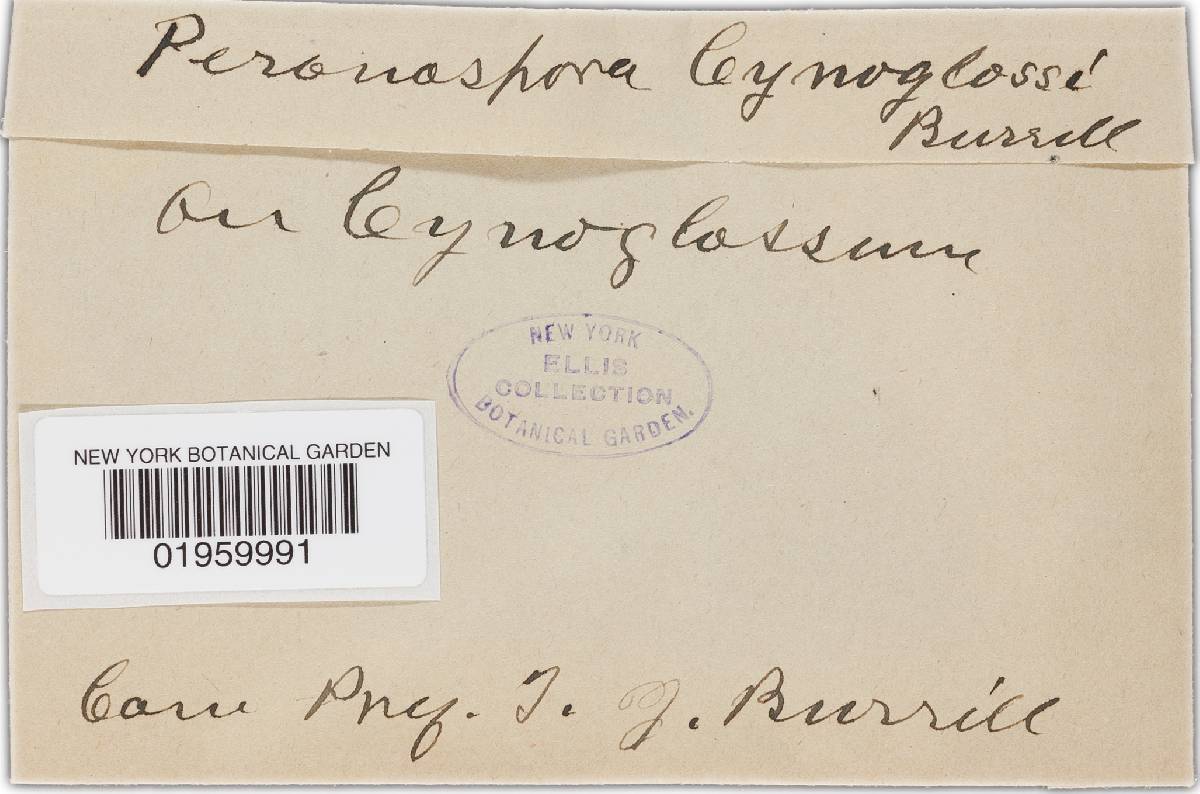 Peronospora Cynoglossi
Burrill
on Cynoglossum
NEW YORK
ELLIS
COLLECTION
BOTANICAL GARDEN.
NEW YORK BOTANICAL GARDEN
01959991
Com Prof. T. J. Burrill